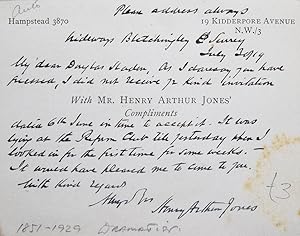 Auto
Please address always
Hampstead 3870
19 Kidderpore Avenue
N.W./3
Hideways Bletchingley E Surrey
July 20/19
My dear Douglas Sladen, As I daresay you have
guessed, I did not receive yr kind invitation
With Mr. Henry Arthur Jones'
Compliments
dated 6th June in time to accept it. It was
lying at the Reform Club till yesterday when I
looked in for the first time for some weeks. —
It would have pleased me to come to you
With kind regard
Henry Arthur Jones
£3
1851-1929 Dramatist.